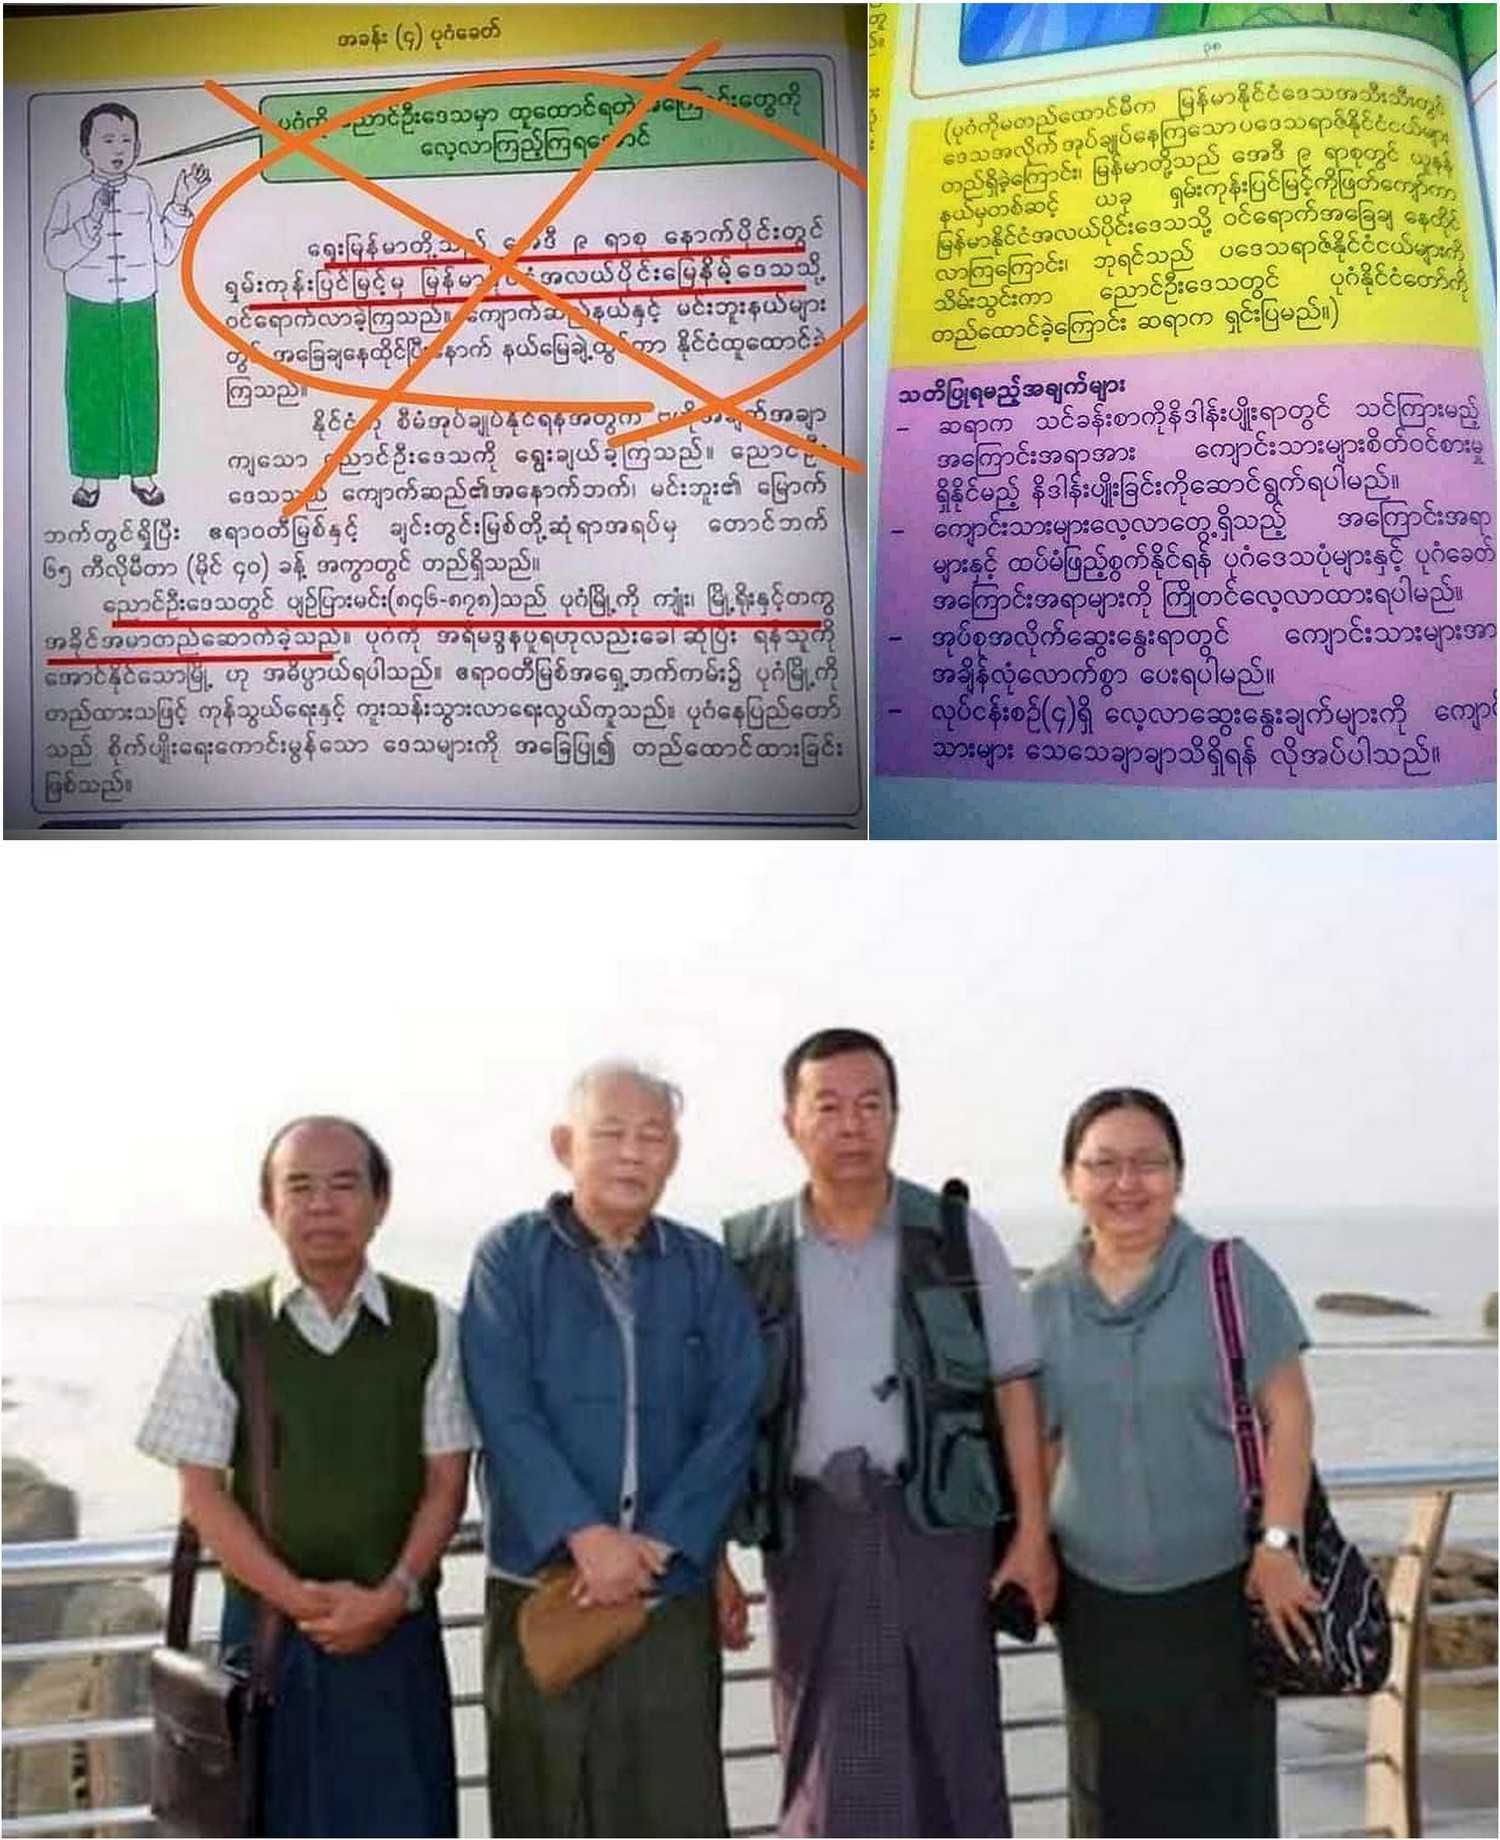 အခန်း (၄) ပုဂံခေတ်
ပုဂံကို ညောင်ဦးဒေသမှာ ထူထောင်ရတဲ့ အကြောင်းတွေကို
လေ့လာကြည့်ကြရအောင်
ရှေးမြန်မာတို့သည် အေဒီ ၉ ရာစု နောက်ပိုင်းတွင်
ရှမ်းကုန်းပြင်မြင့်မှ မြန်မာနိုင်ငံအလယ်ပိုင်းမြေနိမ့်ဒေသသို့
ဝင်ရောက်လာခဲ့ကြသည်။ ကျောက်ဆည်နယ်နှင့် မင်းဘူးနယ်များ
တွင် အခြေချနေထိုင်ပြီးနောက် နယ်မြေချဲ့ထွင်ကာ နိုင်ငံထူထောင်ခဲ့
ကြသည်။
နိုင်ငံကို စီမံအုပ်ချုပ်နိုင်ရန်အတွက် ဗဟိုအချက်အချာ
ကျသော ညောင်ဦးဒေသကို ရွေးချယ်ခဲ့ကြသည်။ ညောင်ဦး
ဒေသသည် ကျောက်ဆည်၏အနောက်ဘက်၊ မင်းဘူး၏ မြောက်
ဘက်တွင်ရှိပြီး ဧရာဝတီမြစ်နှင့် ချင်းတွင်းမြစ်တို့ဆုံရာအရပ်မှ တောင်ဘက်
၆၅ ကီလိုမီတာ (မိုင် ၄၀) ခန့် အကွာတွင် တည်ရှိသည်။
ညောင်ဦးဒေသတွင် ပျဉ်ပြားမင်း(၈၄၆-၈၇၈)သည် ပုဂံမြို့ကို ကျုံး၊ မြို့ရိုးနှင့်တကွ
အခိုင်အမာတည်ဆောက်ခဲ့သည်။ ပုဂံကို အရိမဒ္ဒနပူရဟုလည်းခေါ်ဆိုပြီး ရန်သူကို
အောင်နိုင်သောမြို့ ဟု အဓိပ္ပာယ်ရပါသည်။ ဧရာဝတီမြစ်အရှေ့ဘက်ကမ်း၌ ပုဂံမြို့ကို
တည်ထားသဖြင့် ကုန်သွယ်ရေးနှင့် ကူးသန်းသွားလာရေးလွယ်ကူသည်။ ပုဂံနေပြည်တော်
သည် စိုက်ပျိုးရေးကောင်းမွန်သော ဒေသများကို အခြေပြု၍ တည်ထောင်ထားခြင်း
ဖြစ်သည်။
၃၈
(ပုဂံကိုမတည်ထောင်မီက မြန်မာနိုင်ငံဒေသအသီးသီးတွင်
ဒေသအလိုက်အုပ်ချုပ်နေကြသောပဒေသရာဇ်နိုင်ငံငယ်များ
တည်ရှိခဲ့ကြောင်း၊ မြန်မာတို့သည် အေဒီ ၉ ရာစုတွင် ယူနန်
နယ်မှတစ်ဆင့် ယခု ရှမ်းကုန်းပြင်မြင့်ကိုဖြတ်ကျော်ကာ
မြန်မာနိုင်ငံအလယ်ပိုင်းဒေသသို့ ဝင်ရောက်အခြေချ နေထိုင်
လာကြကြောင်း၊ ဘုရင်သည် ပဒေသရာဇ်နိုင်ငံငယ်များကို
သိမ်းသွင်းကာ ညောင်ဦးဒေသတွင် ပုဂံနိုင်ငံတော်ကို
တည်ထောင်ခဲ့ကြောင်း ဆရာက ရှင်းပြမည်။)
သတိပြုရမည့်အချက်များ
– ဆရာက သင်ခန်းစာကိုနိဒါန်းပျိုးရာတွင် သင်ကြားမည့်
အကြောင်းအရာအား ကျောင်းသားများစိတ်ဝင်စားမှု
ရှိနိုင်မည့် နိဒါန်းပျိုးခြင်းကိုဆောင်ရွက်ရပါမည်။
– ကျောင်းသားများလေ့လာတွေ့ရှိသည့် အကြောင်းအရာ
များနှင့် ထပ်မံဖြည့်စွက်နိုင်ရန် ပုဂံဒေသပုံများနှင့် ပုဂံခေတ်
အကြောင်းအရာများကို ကြိုတင်လေ့လာထားရပါမည်။
– အုပ်စုအလိုက်ဆွေးနွေးရာတွင် ကျောင်းသားများအား
အချိန်လုံလောက်စွာ ပေးရပါမည်။
– လုပ်ငန်းစဉ်(၄)ရှိ လေ့လာဆွေးနွေးချက်များကို ကျောင်း
သားများ သေသေချာချာသိရှိရန် လိုအပ်ပါသည်။